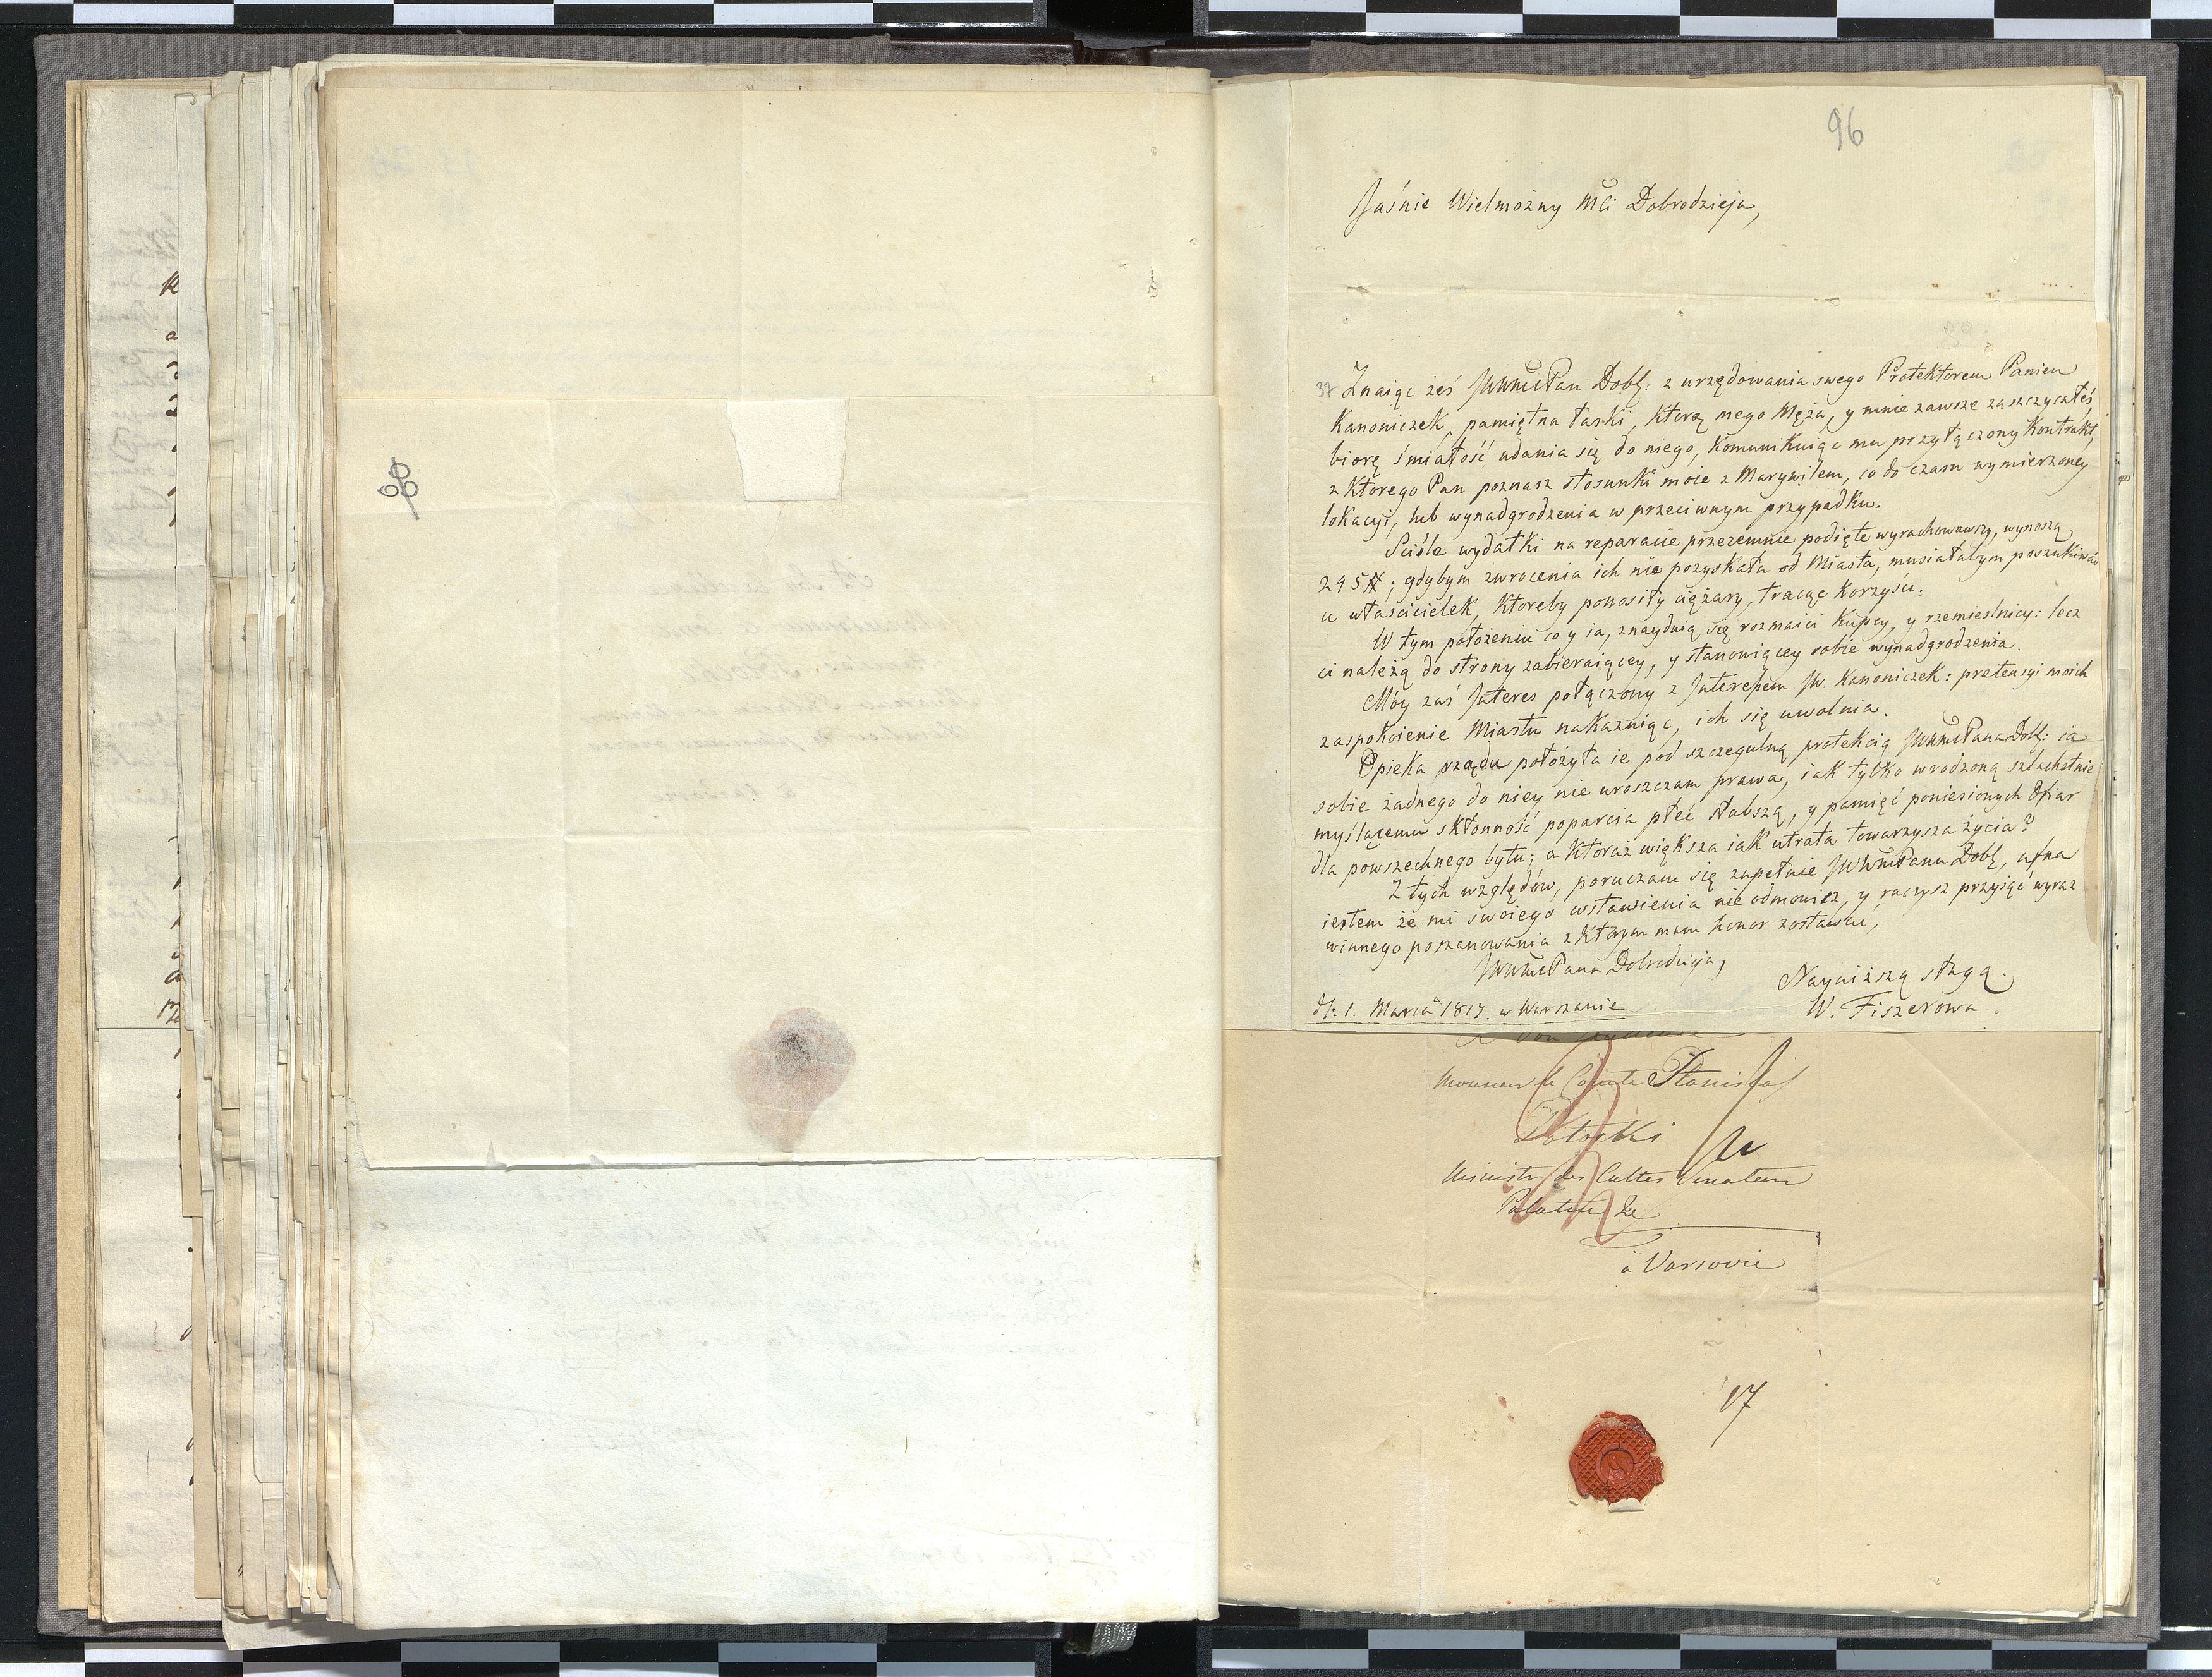 96
Jaśnie Wielmożny Mci Dobrodzieja,
37
Znaiąc żeś JWWMć Pan Dobţ: z urzędowania swego Protektorem Panien
Kanoniczek, pamiętna łaski, którą mego Męża, y mnie zawsze zaszczycałeś
biorę śmiałość udania się do niego, Komunikuiąc mu przyłączony Kontrakt,
z którego Pan poznasz stosunki moie z Marywilem, co do czasu wymierzoney
lokacyi, lub wynadgrodzenia w przeciwnym przypadku.
Sciśle wydatki na reparacie przezemnie podięte wyrachowawszy, wynoszą
245 #; gdybym zwrocenia ich nie pozyskała od Miasta, musiałabym poszukiwać
u właścicielek, ktoreby ponosiły ciężary, tracąc Korzyści.
W tym położeniu co y ia, znayduią się rozmaici Kupcy, y rzemieslnicy: lecz
ci należą do strony zabieraiącey, y stanowiącey sobie wynadgrodzenia.
Móy zaś Jnteres połączony z Jnteressem JW. Kanoniczek: pretensyi moich
zaspokoienie Miastu nakazuiąc, ich się uwolnia.
Opieka rządu położyła ie pód szczegulną protekcią JWWMć Pana Dobţ: ia
sobie żadnego do niey nie uroszczam prawa, iak tylko wrodzoną szlachetnie
myślącemu skłonność poparcia płeć słabszą, y pamięć poniesionych Ofiar
dla powszechnego bytu; a Któraż większa iak utrata towarzysza życia?
Z tych względów, poruczam się zupełnie JWWMć Panu Dobţ, ufna
iestem że mi swoiego wstawienia nie odmowisz, y raczysz przyiąć wyraz
winnego poszanowania z Którym mam honor zostawać,
JWWMć Pana Dobrodzieja,
Nayniższą sługą.
dţ: 1. Marca 1817. w Warszawie
W. Fiszerowa.
Monsieur le Comte Stanislas
Potocki
Ministre des Cultes Senateur
Palatin &c
à Varsovie
17